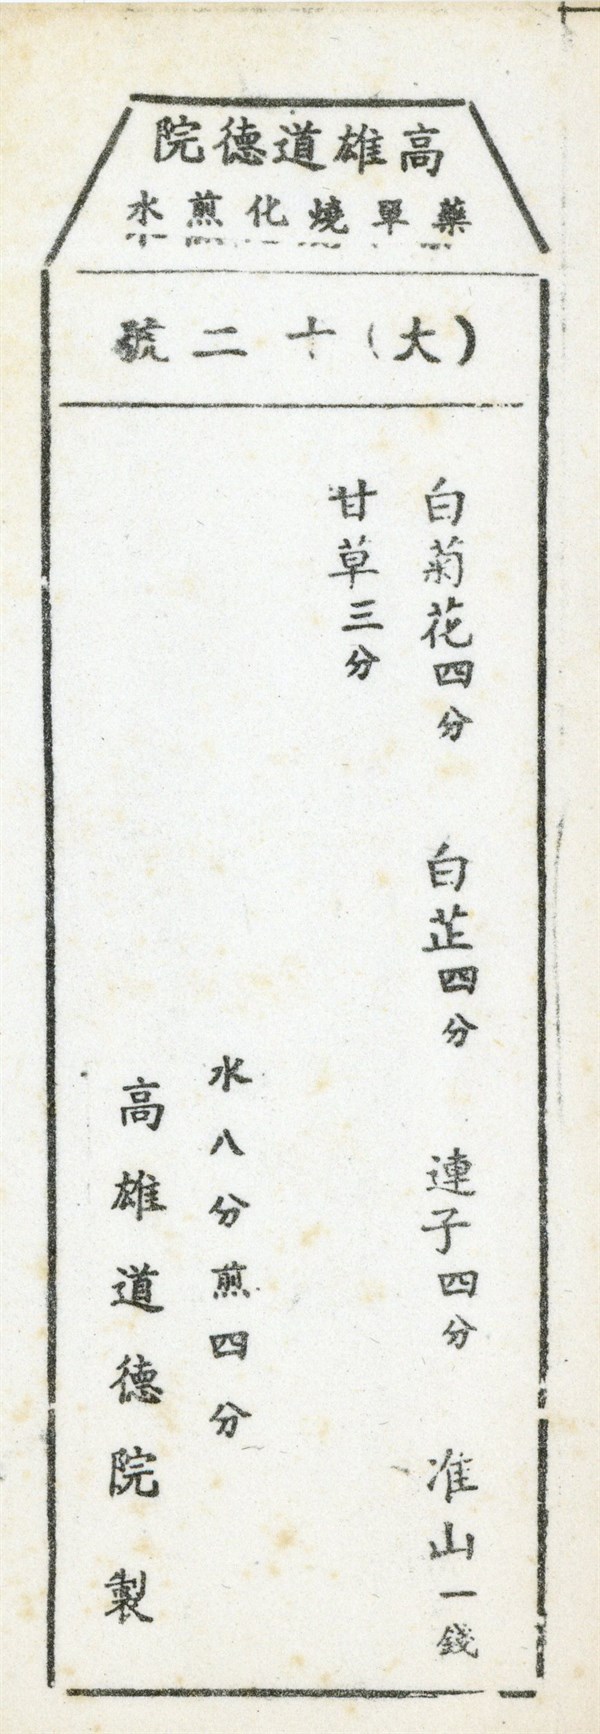 高雄道德院
藥單燒化煎水
(大)十二號
白菊花四分 白芷四分 連子四分 准山一錢
甘草三分
水八分煎四分
高雄道德院製